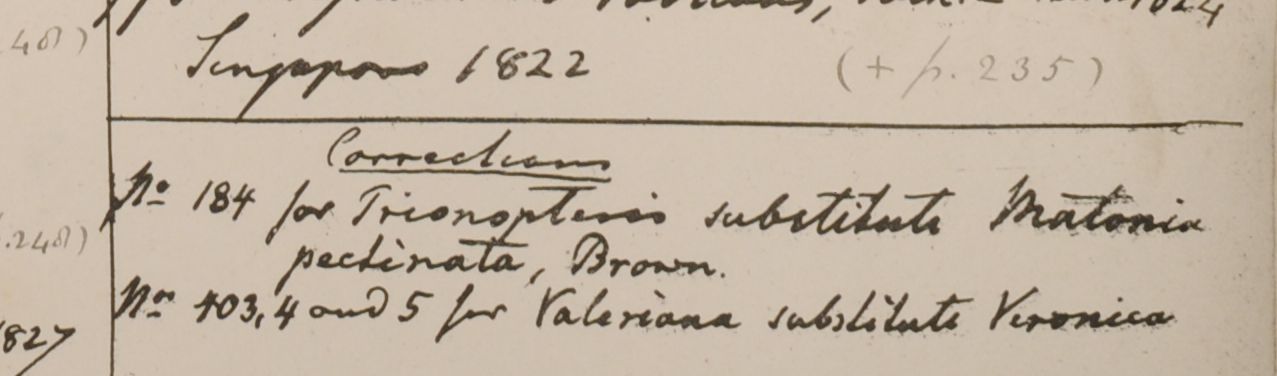 1824
Singapore 1822 (+ p. 235)
Corrections
No 184 for Trionopteris substitute Matonia
pectinata, Brown.
Nos 403, 4 and 5 for Valeriana substitute Veronica
248)
1827